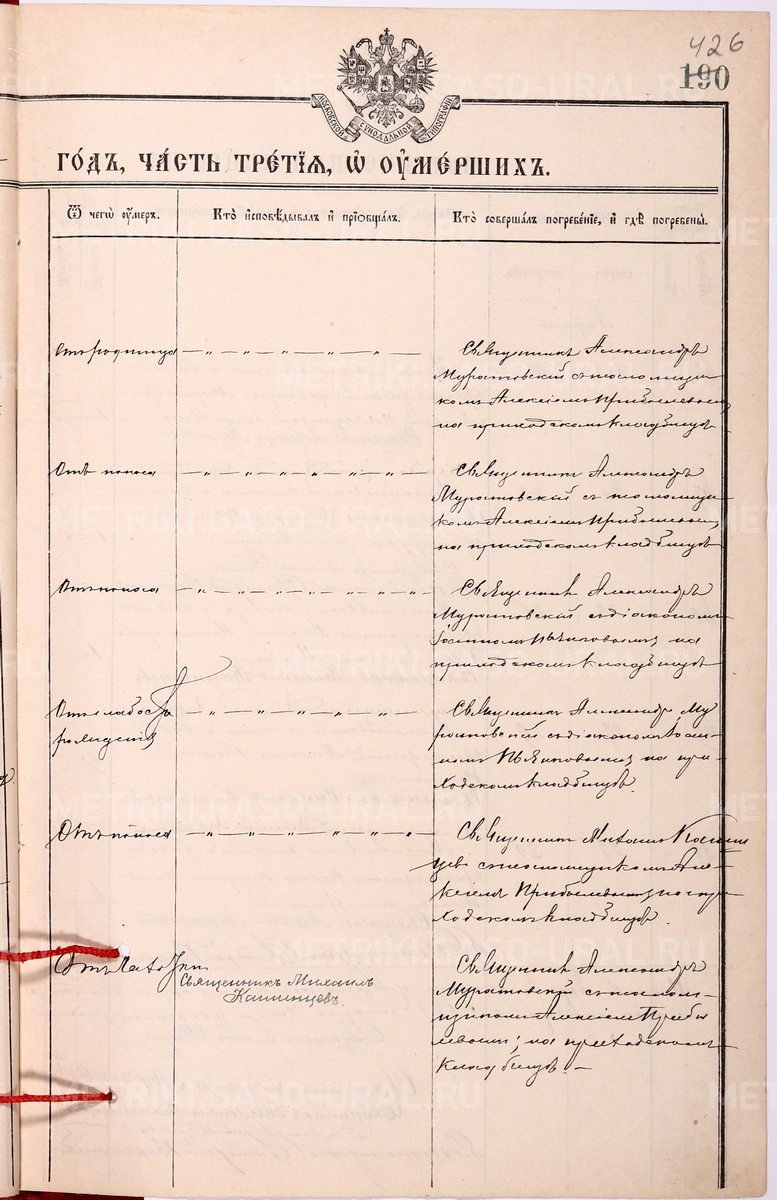 426
190
МОСКОВСКОЙ СѴНОДАЛЬНОЙ ТИПОГРАФІИ
ГО́ДЪ, ЧА́СТЬ ТРЕ́ТІѦ, Ѡ ОУ҆МЕ́РШИХЪ.
Ѿ чегѡ̀ оу҆́меръ.
Кто̀ и҆сповѣ́дывалъ и҆ прїѡбща́лъ.
Кто̀ соверша́лъ погребе́нїе, и҆ гдѣ̀ погребены̀.
Отъ родимца
Священникъ Александръ
Муратовскій съ псаломщи
комъ Алексѣемъ Прибылевымъ,
на приходскомъ кладбищѣ
Отъ поноса
Священникъ Александръ
Муратовскій съ псаломщи
комъ Алексѣемъ Прибылевымъ,
на приходскомъ кладбищѣ
Отъ поноса
Священникъ Александръ
Муратовскій съ діакономъ
Іоанномъ на
приходскомъ кладбищѣ
Отъ слабости
рожденія
Священникъ Александръ Му
ратовскій съ діакономъ Іоан-
номъ на при-
ходскомъ кладбищѣ.
Отъ поноса
Священникъ Михаилъ Кашин
цевъ съ псаломщикомъ Але-
ксѣемъ Прибылевымъ, на при-
ходскомъ кладбищѣ.
Отъ
Священникъ Михаилъ
Кашинцевъ.
Священникъ Александръ
Муратовскій съ псалом-
щикомъ Алексѣемъ Прибы
левымъ; на приходскомъ
кладбищѣ. —
METRIKI.GASO-URAL.RU